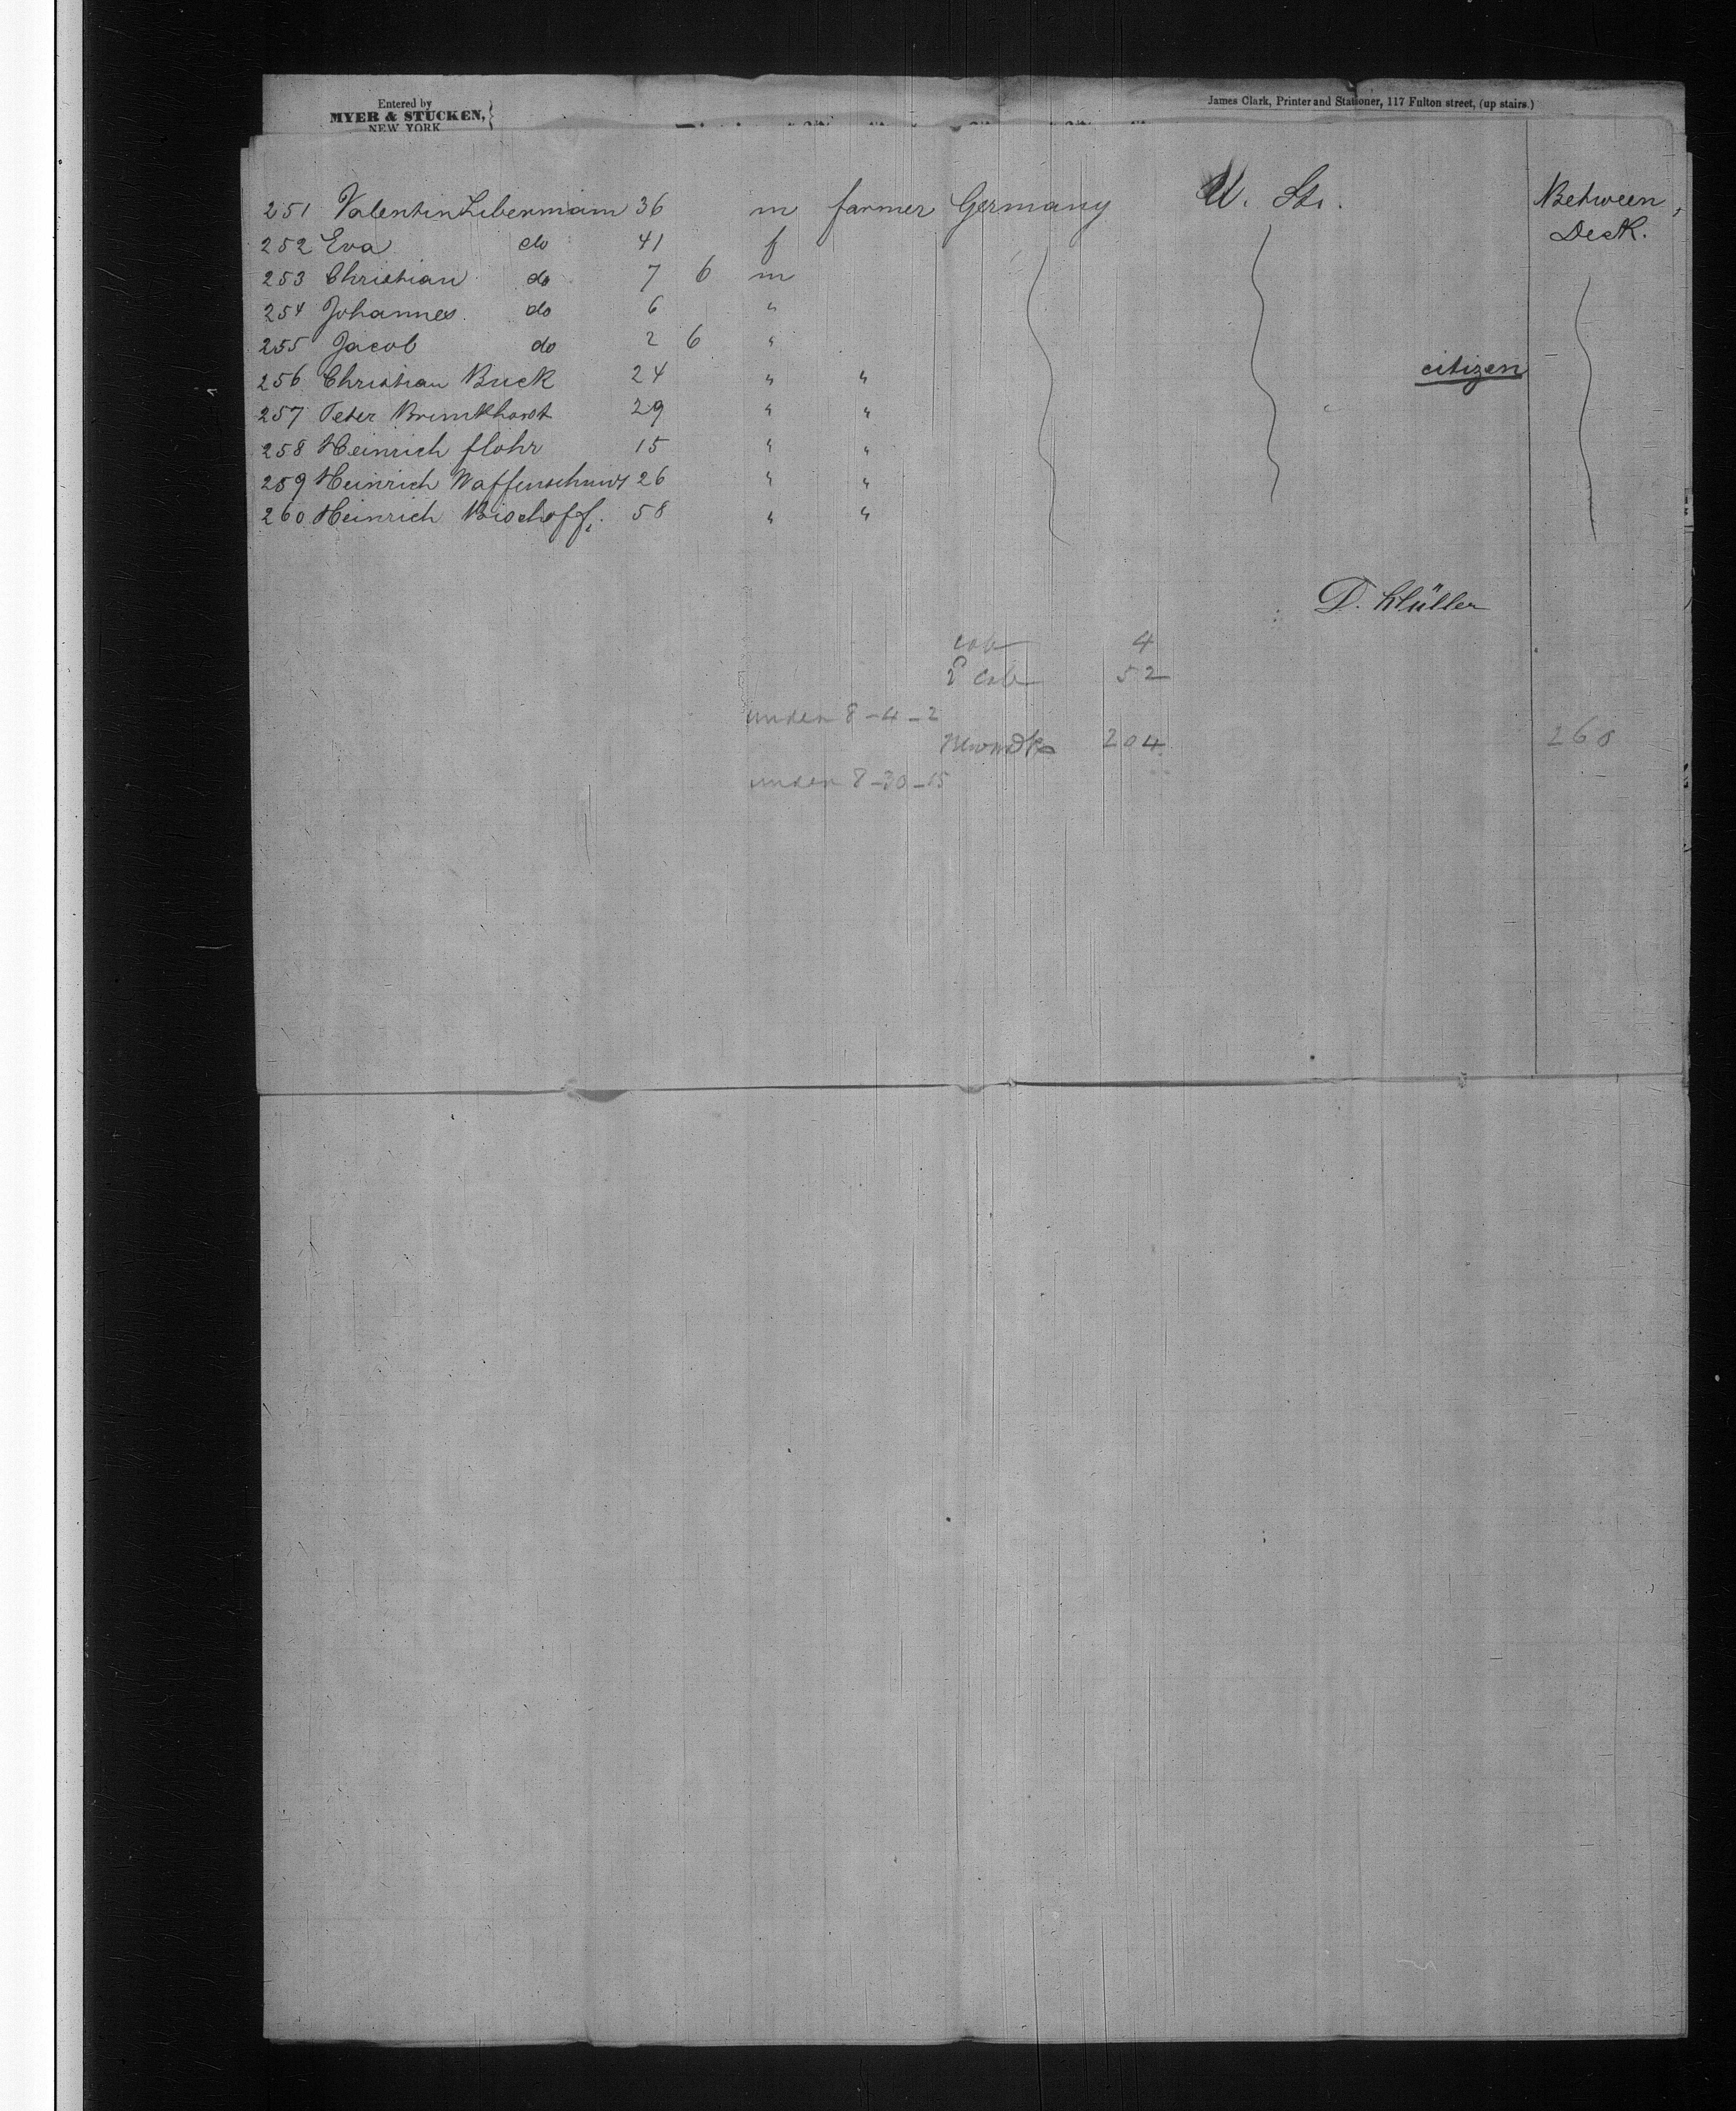 Entered by
MYER & STUCKEN,
NEW YORK
James Clark, Printer and Stationer, 117 Fulton street, (up stairs.)
251 Valentin Libermann 36 m farmer Germany U. Sts. Between
252 Eva do 41 f Deck.
253 Christian do 7 6 m
254 Johannes do 6 "
255 Jacob do 2 6 "
256 Christian Buck 24 " " citizen
257 Peter Brinckhorst 29 " "
258 Heinrich flohr 15 " "
259 Heinrich Waffenschmidt 26 " "
260 Heinrich Bischoff. 58 " "
D. Klüller
cab 4
2 Cab 52
under 8-4-2
204 260
under 8-30-15